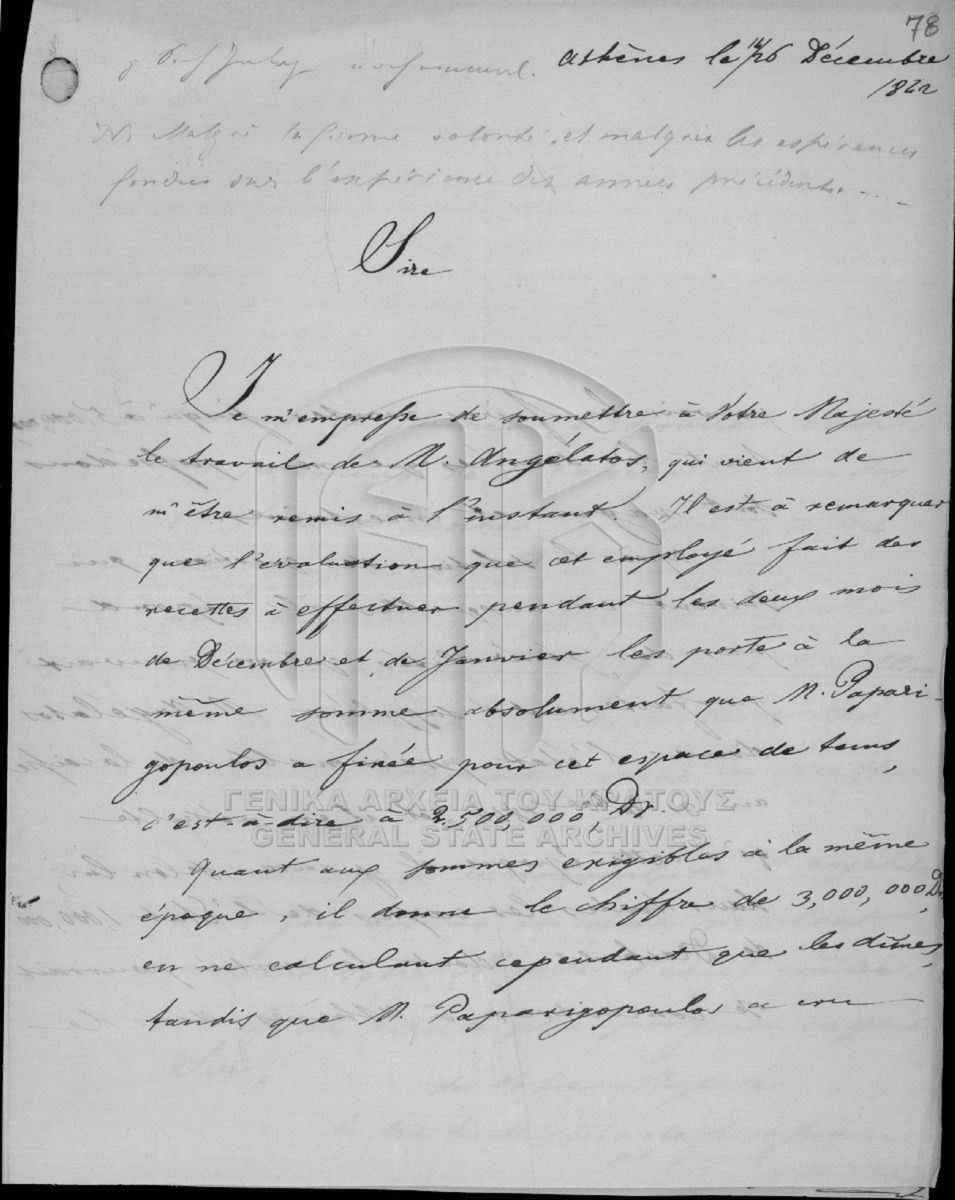 78
Athènes le 14/26 Décembre
Malgré la ferme volonté, et malgré les espérances
fondées sur l'expérience des années précédentes ....
Sire
Je m'empresse de soumettre à Votre Majesté
le travail de M. Angélatos, qui vient de
m'être remis à l'instant. Il est à remarquer
que l'evaluation que cet employé fait des
recettes à effectuer pendant les deux mois
de Décembre et de Janvier les porte à la
même somme absolument que M. Papari-
gopoulos a fixée pour cet espace de tems,
c'est-à-dire à 2,500,000, Dr.
ΓΕΝΙΚΑ ΑΡΧΕΙΑ ΤΟΥ ΚΡΑΤΟΥΣ
GENERAL STATE ARCHIVES
Quant aux sommes exigibles à la même
époque, il donne le chiffre de 3,000,000, Dr
en ne calculant cependant que les dîmes,
tandis que M. Paparigopoulos a cru